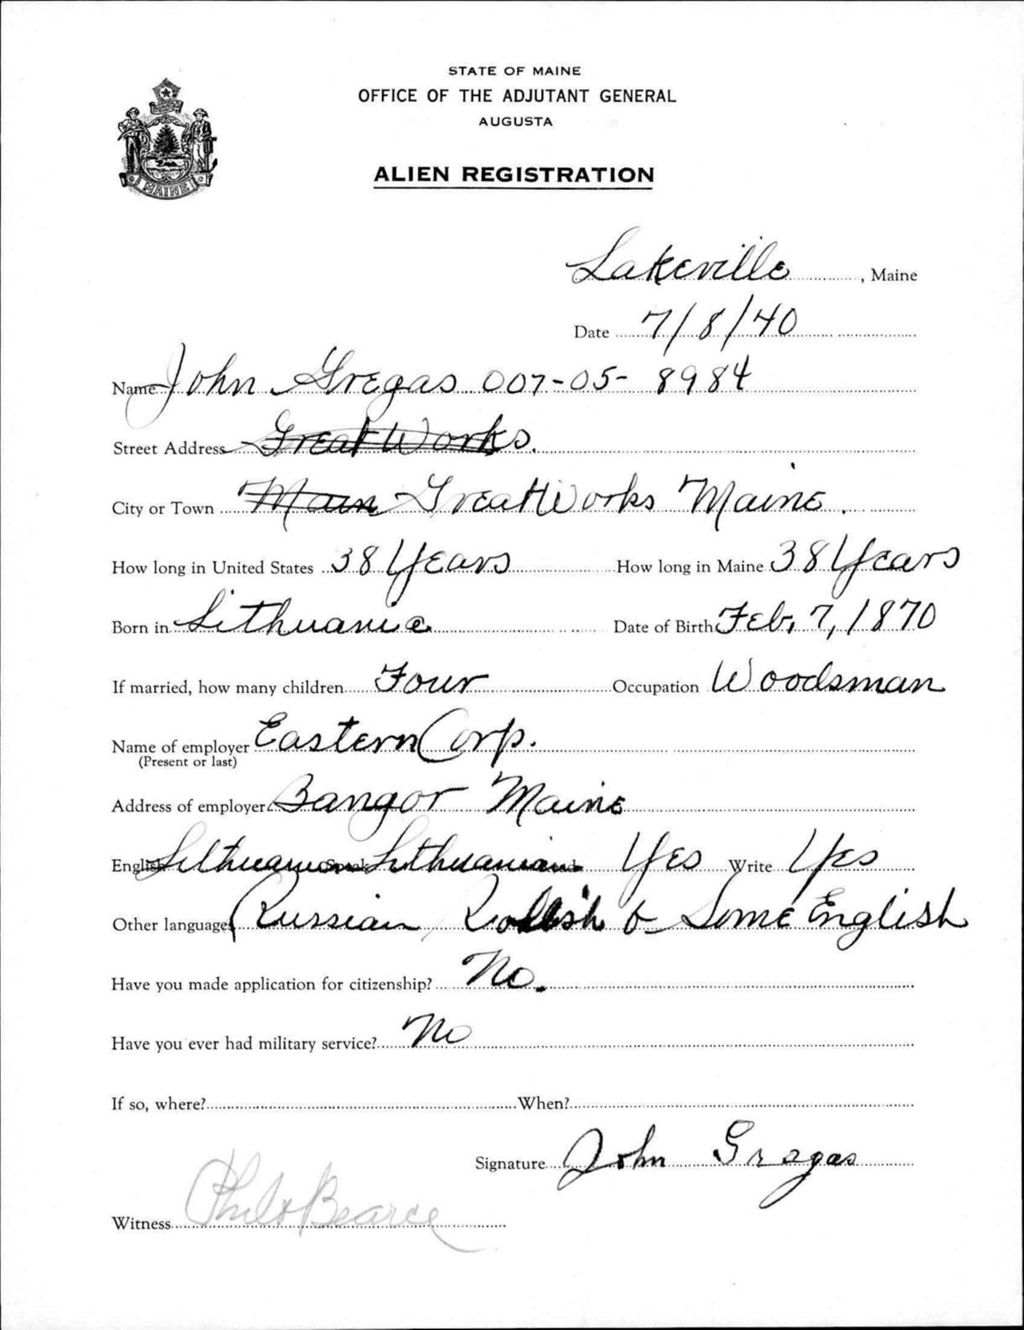 STATE OF MAINE
OFFICE OF THE ADJUTANT GENERAL
AUGUSTA
ALIEN REGISTRATION
MAINE
Lakeville, Maine
Date 7/8/40
Name John Gregas 007-05-8984
Street Address Great Works.
City or Town Main Great Works Maine.
How long in United States 38 Years How long in Maine 38 Years
Born in Lithuania Date of Birth Feb. 7, 1870
If married, how many children Four Occupation Woodsman
Name of employer Eastern Corp.
(Present or last)
Address of employer Bangor Maine
English Lithuanian Speak Lithuanian Yes Write Yes
Other languages Russian, Polish & Some English
Have you made application for citizenship? No.
Have you ever had military service? No
If so, where? When?
Signature John Gregas
Witness Bearce